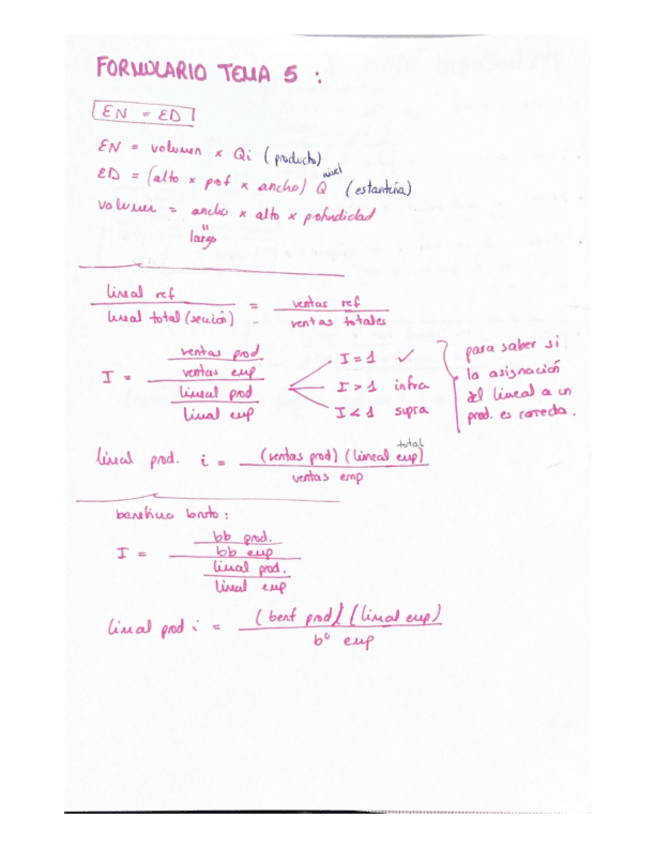 FORMULARIO TEMA 5 :
EN = ED
EN = volumen x Qi (producto)
ED = (alto x prof x ancho) Q nivel (estantería)
volumen = ancho x alto x profundidad
"
largo
lineal ref / lineal total (sección) = ventas ref / ventas totales
I = (ventas prod / ventas emp) / (lineal prod / lineal emp)
I = 1 ✓
I > 1 infra
I < 1 supra
para saber si
la asignación
del lineal a un
prod. es correcta.
lineal prod. i = (ventas prod) (lineal total emp) / ventas emp
beneficio bruto :
I = (bb prod. / bb emp) / (lineal prod. / lineal emp)
lineal prod i = (benf prod) (lineal emp) / bº emp